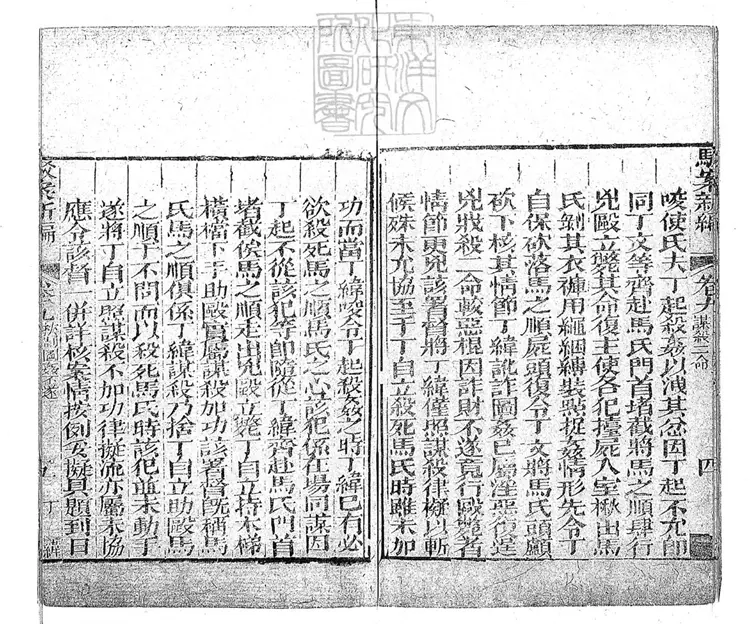 駁案新編 卷九 謀殺二命 四
唆使氏夫丁起殺姦以洩其忿因丁起不允卽
同丁文等齊赴馬氏門首堵截將馬之順肆行
兇毆立斃其命復主使各犯擡屍入室揪出馬
氏剝其衣褲用繩綑縛裝點捉姦情形先令丁
自保砍落馬之順屍頭復令丁文將馬氏頭顱
砍下核其情節丁緯訛詐圖姦已屬淫惡復逞
兇戕殺二命較惡棍因詐財不遂竟行毆斃者
情節更兇該署督將丁緯僅照謀殺律擬以斬
候殊未允協至于丁自立殺死馬氏時雖未加
功而當丁緯唆令丁起殺姦之時丁緯已有必
欲殺死馬之順馬氏之心該犯係在場同謀因
丁起不從該犯等卽隨從丁緯齊赴馬氏門首
堵截俟馬之順走出兇毆立斃丁自立持木梯
橫檔下手助毆實屬謀殺加功該署督旣稱馬
氏馬之順俱係丁緯謀殺乃捨丁自立助毆馬
之順于不問而以殺死馬氏時該犯並未動手
遂將丁自立照謀殺不加功律擬流亦屬未協
應令該督 併詳核案情按例妥擬具題到日
丁緯
東洋文化研究所圖書